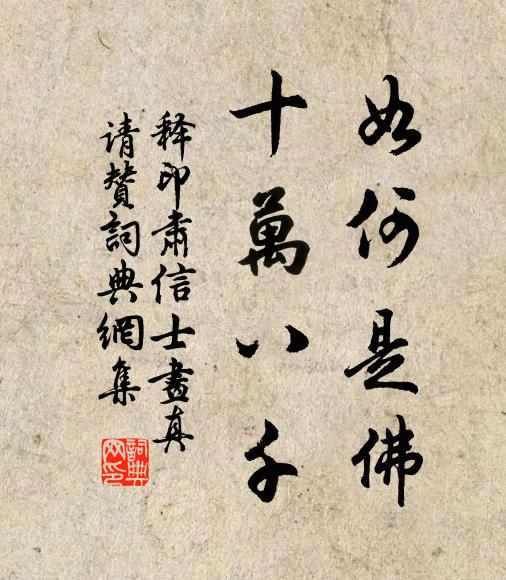 如何是佛
十萬八千
释印肃信士畫真
请赞詞典網集
詞典网印